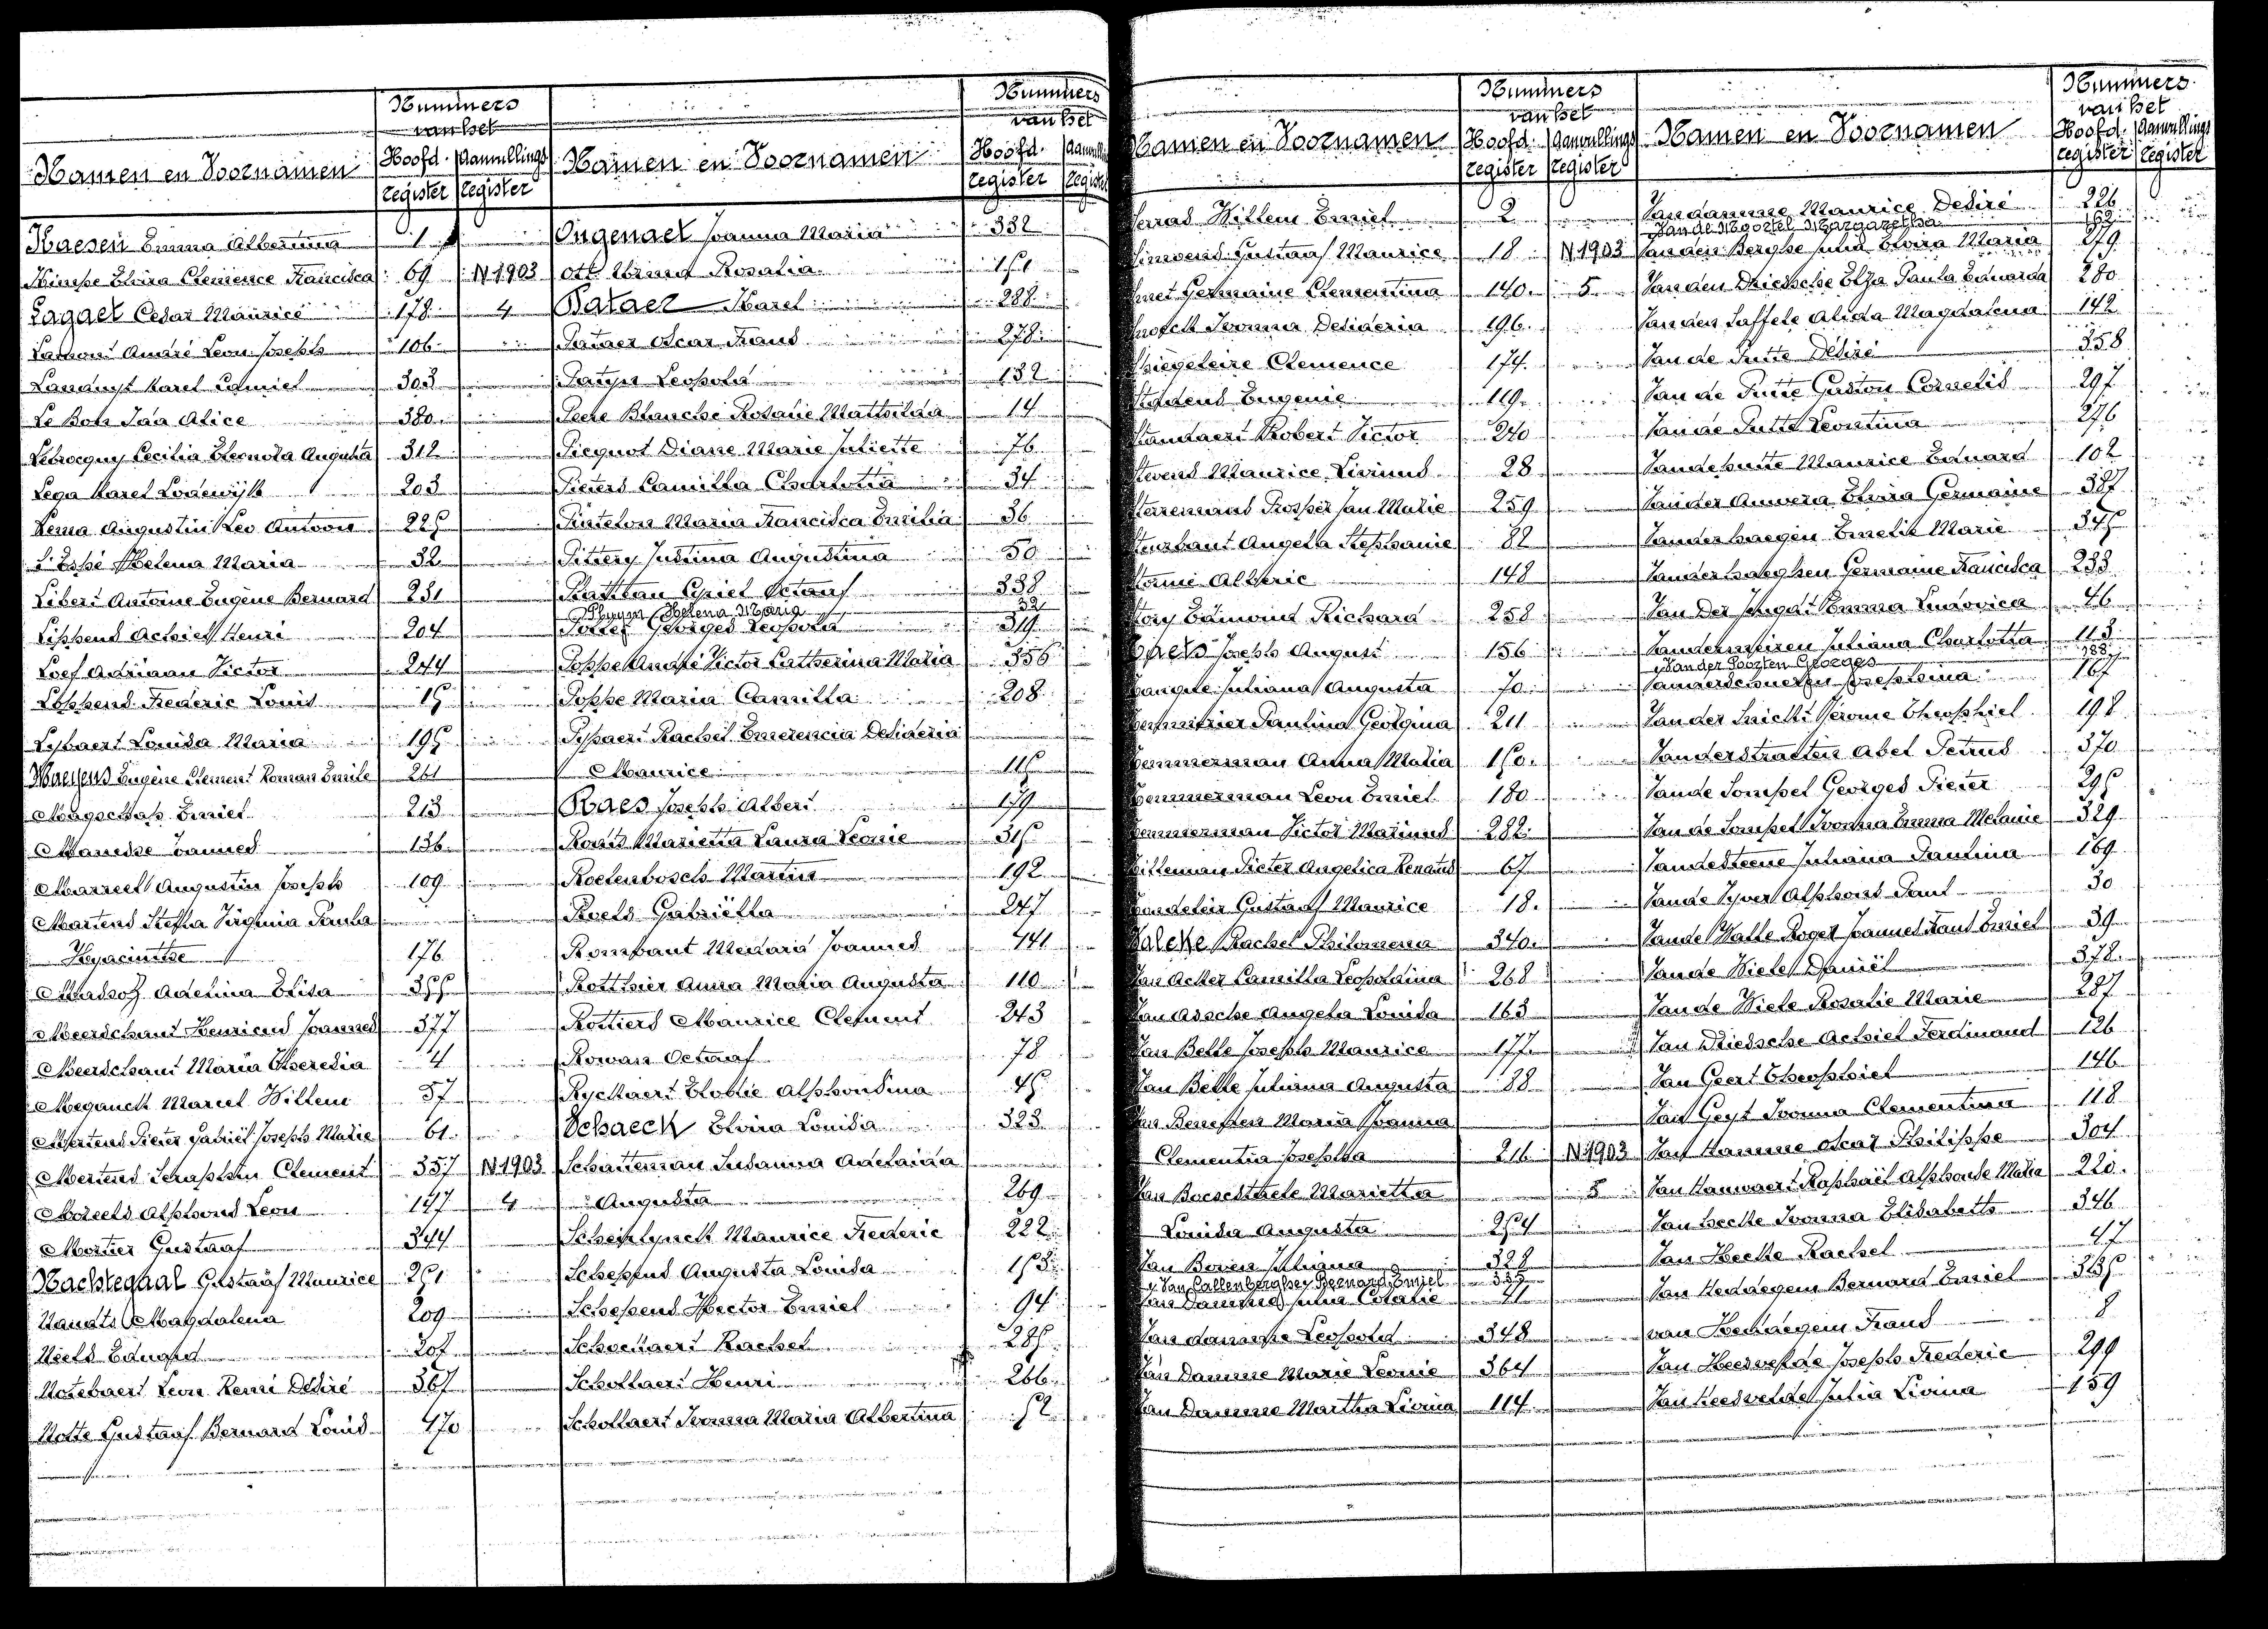 Nummers
van het
Namen en Voornamen
Hoofd. Aanvullings
register register
Haesen Emma Albertina 1
Himpe Elvira Clemence Francisca 69 N 1903
Lagaet Cesar Maurice 178 4
Lamont André Leon Joseph 106
Landuyt Karel Camiel 303
Le Bon Ida Alice 380
Cecilia Eleonora Augusta 312
Lega Karel Lodewijk 203
Lema Augustin Leo Antoon 225
Helena Maria 32
Libert Antoine Eugène Bernard 231
Lippens Achiel Henri 204
Loef Adriaan Victor 244
Loppens Frederic Louis 15
Lybaert Louisa Maria 195
Maeyens Eugène Clement Roman Emile 261
Magschap Emiel 213
Joannes 136
Marreel Augustin Joseph 109
Martens Stella Virginia Paula
Hyacinthe 176
Adelina Elisa 355
Meerschaut Henricus Joannes 377
Meerschaut Maria Theresia 4
Meganck Marcel Willem 57
Mertens Pieter Gabriël Joseph Marie 61
Mertens Seraphin Clement 357 N 1903
Moreels Alphons Leon 147 4
Mortier Gustaaf 344
Nachtegaal Gustaaf Maurice 251
Nauats Magdalena 209
Niels Eduard 207
Notebaert Leon Remi Desiré 367
Notte Gustaaf Bernard Louis 470
Nummers
van het
Namen en Voornamen
Hoofd.
register
Ongenaet Joanna Maria 332
Ott Irma Rosalia 151
Pataer Karel 288
Pataer Oscar Frans 278
Patyn Leopold 132
Peere Blanche Rosalie Mathilda 14
Picquot Diane Marie Juliette 76
Pieters Camilla Charlotta 34
Pintelon Maria Francisca Emilia 36
Pittery Justina Augustina 50
Plattau Cyriel Octaaf 338
Pluym Helena Maria 321
Georges Leopold 319
Poppe André Victor Catherina Maria 356
Poppe Maria Camilla 208
Pypaert Rachel Emerencia Desideria
Maurice 115
Raes Joseph Albert 179
Marietta Laura Leonie 315
Roelenbosch Martin 192
Roels Gabriëlla 247
Rombaut Medard Joannes 441
Rotthier Anna Maria Augusta 110
Rottiers Maurice Clement 243
Rowan Octaaf 78
Ryckaert Elodie Alphonsina 45
Schaeck Elvira Louisa 323
Schatteman Susanna Adelaida
Augusta 269
Scheirlynck Maurice Frederic 222
Schepens Augusta Louisa 153
Schepens Hector Emiel 94
Schoenaert Rachel 285
Schollaert Henri 266
Schollaert Ivonna Maria Albertina 52
Nummers
van het
Namen en Voornamen
Hoofd. Aanvullings
register register
Serras Willem Emiel 2
Gustaaf Maurice 18 N 1903
Smet Germaine Clementina 140 5
Snoeck Ivonna Desideria 196
Spiegeleire Clemence 174
Stadens Eugenie 119
Standaert Robert Victor 240
Stevens Maurice Livinus 28
Prosper Jan Marie 259
Steurbaut Angela Stephanie 82
Alberic 148
Story Edmond Richard 258
Joseph August 156
Juliana Augusta 70
Paulina Georgina 211
Temmerman Anna Maria 150
Temmerman Leon Emiel 180
Temmerman Victor Marinus 282
Pieter Angelica Renatus 67
Gustaaf Maurice 18
Valcke Rachel Philomena 340
Van Acker Camilla Leopoldina 268
Van Assche Angela Louisa 163
Van Belle Joseph Maurice 177
Van Belle Juliana Augusta 88
Van Beneden Maria Joanna
Clementia Josepha 216 N 1903
Van Bocxstaele Marietta 5
Louisa Augusta 254
Van Boven Juliana 328
Van Callenberghe Bernard Emiel 333
Van Damme Julia Coralie 41
Van damme Leopold 348
Van Damme Marie Leonie 364
Van Damme Martha Livina 114
Nummers
van het
Namen en Voornamen
Hoofd. Aanvullings
register register
Van damme Maurice Desiré 226
Van de Moortel Margaretha 162
Van den Berghe Julia Elvira Maria 279
Van den Driessche Elza Paula Eduarda 280
Van den Saffele Alida Magdalena 142
Van de Putte Désiré 358
Van de Putte Gaston Cornelis 297
Van de Putte Leontina 276
Vandeputte Maurice Eduard 102
Van der Auwera Elvira Germaine 387
Vanderhaegen Emelie Marie 345
Vanderhaeghen Germaine Francisca 233
Van Der Jeugt Emma Ludovica 46
Vandermeiren Juliana Charlotta 113
Van der Poorten Georges 188
Vanderschueren Josephina 167
Van der Snickt Jérome Theophiel 198
Vanderstraeten Abel Petrus 370
Van de Sompel Georges Pieter 295
Van de Sompel Ivonna Emma Melanie 329
Van de Steene Juliana Paulina 169
Van de Vyver Alphons Paul 30
Van de Walle Roger Joannes Frans Emiel 39
Van de Wiele Daniël 378
Van de Wiele Rosalie Marie 287
Van Driessche Achiel Ferdinand 126
Van Geert Theophiel 146
Van Geyt Ivonna Clementina 118
Van Hamme Oscar Philippe 304
Van Hauwaert Raphaël Alphonse Maria 220
Van hecke Ivonna Elisabeth 346
Van Hecke Rachel 47
Van Heddegem Bernard Emiel 335
van Heddegem Frans 8
Van Heesvelde Joseph Frederic 299
Van Heesvelde Julia Livina 159